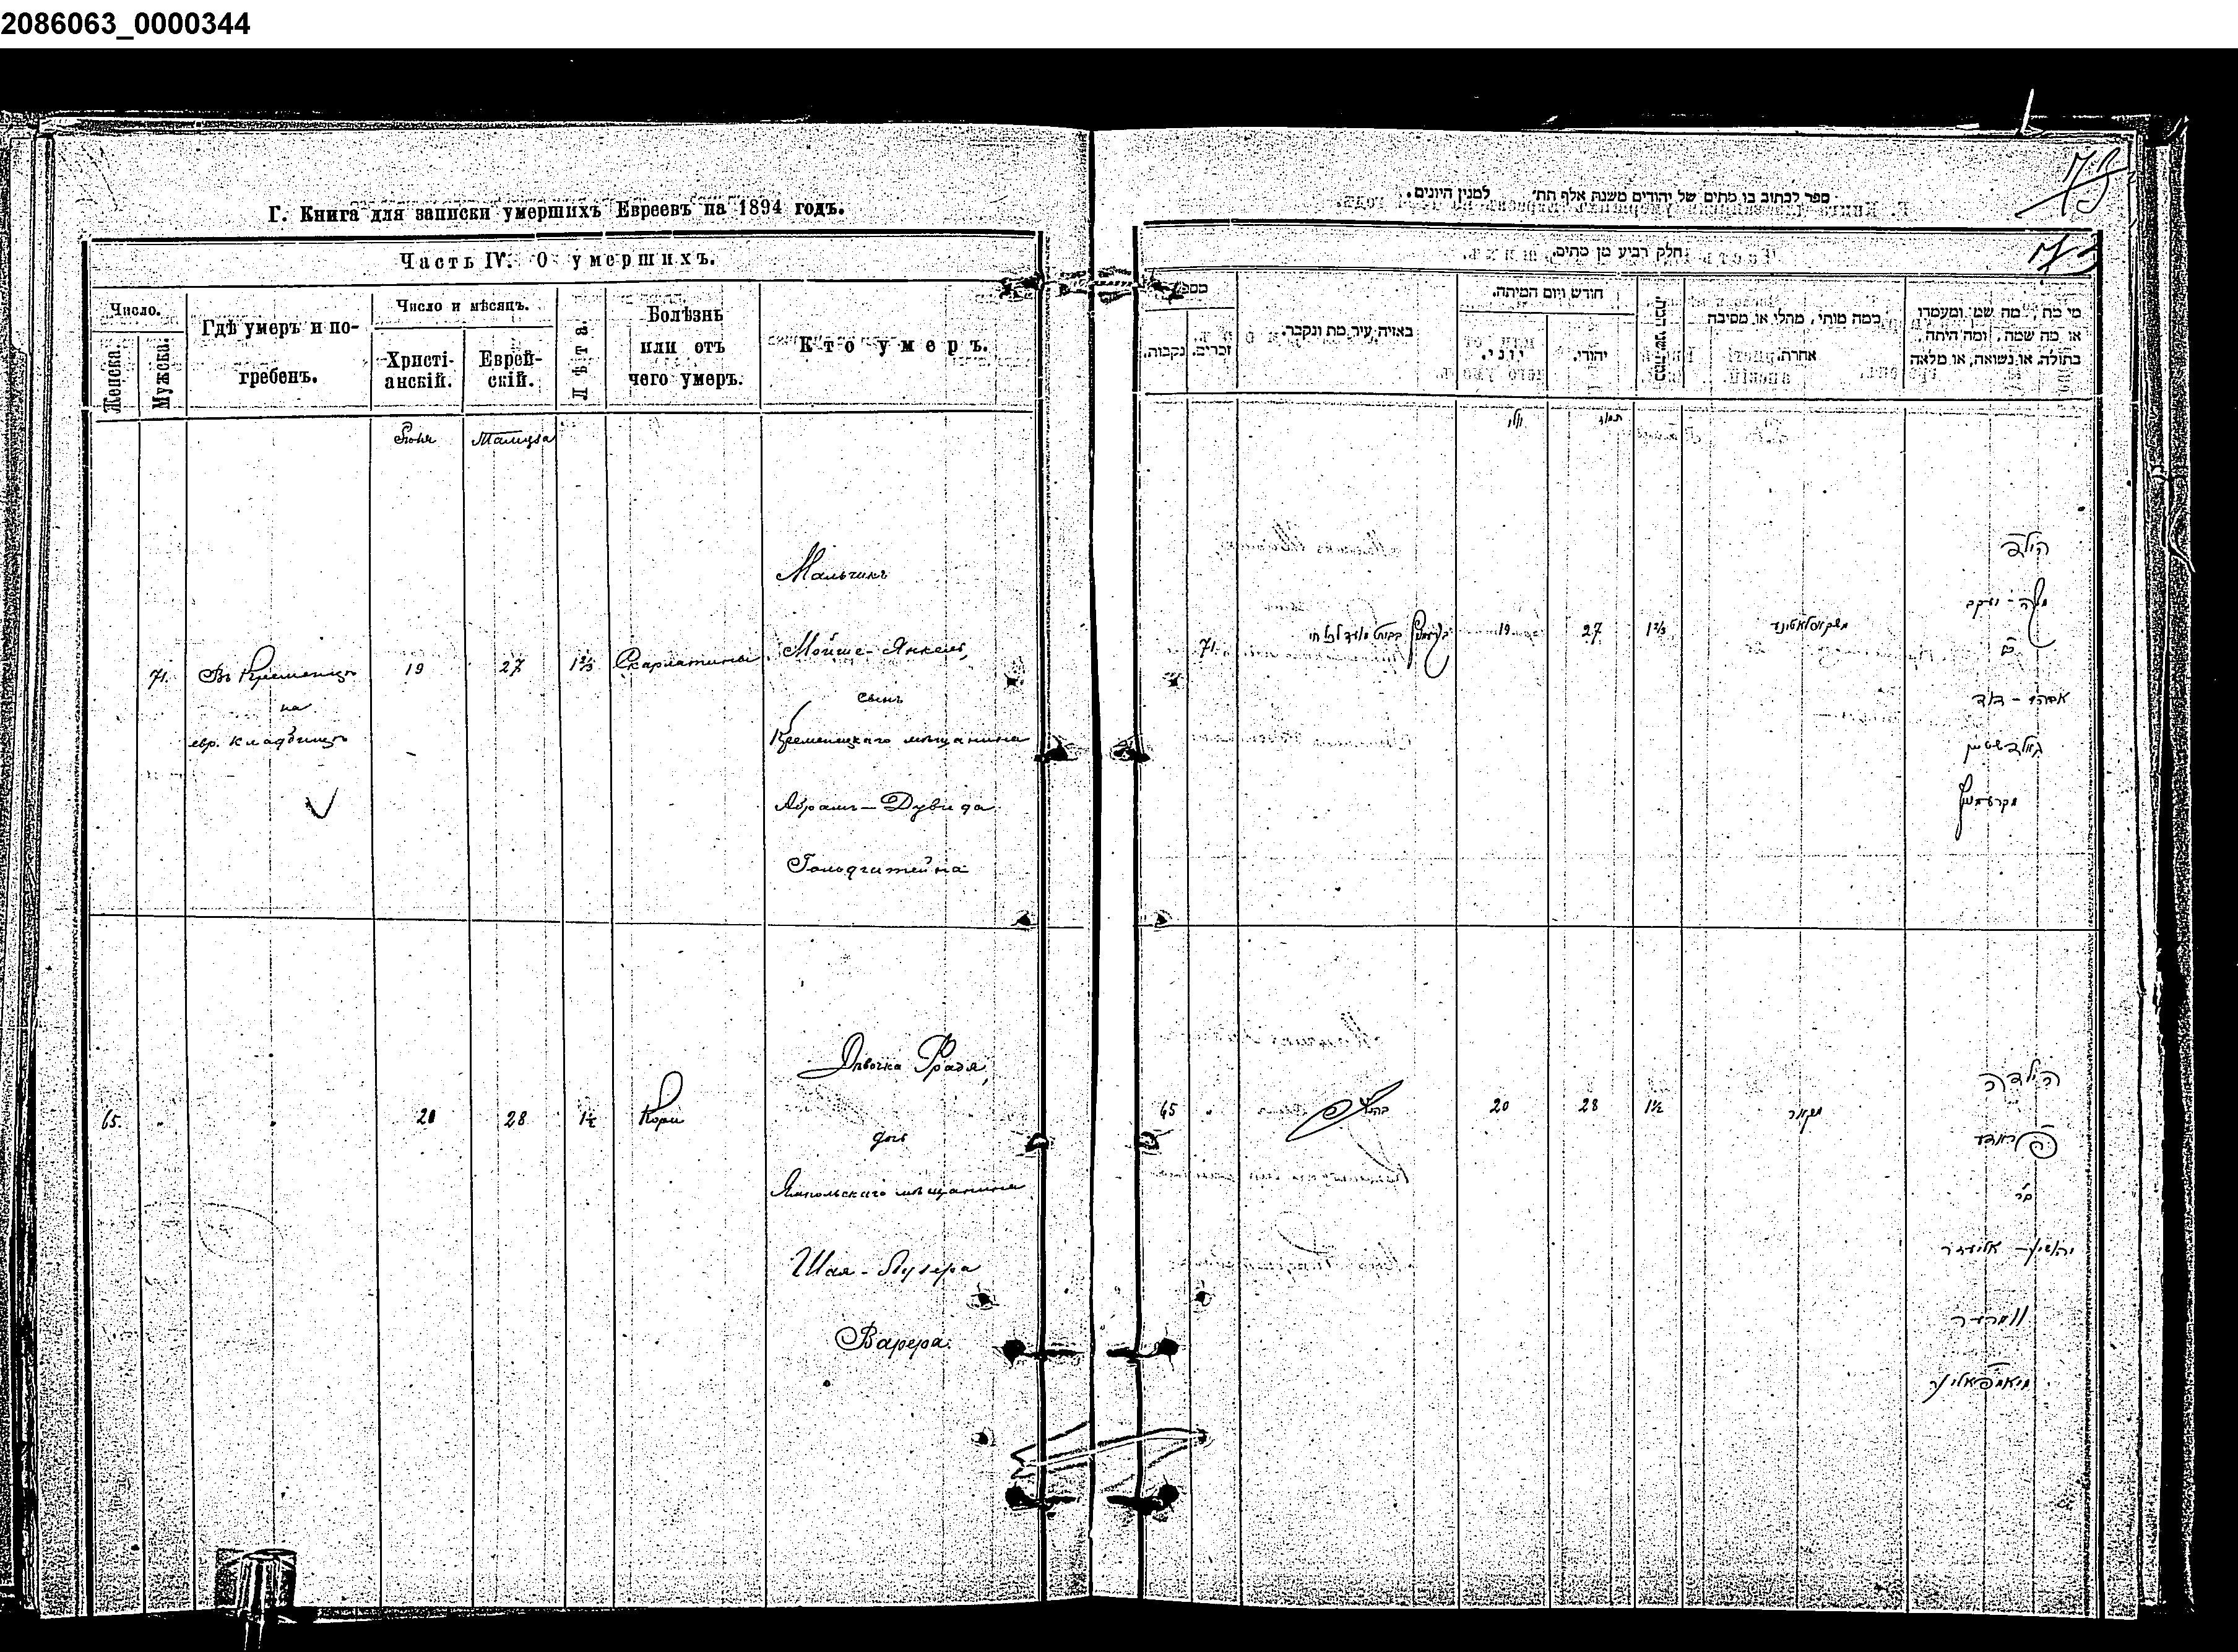 2086063_0000344
Г. Книга для записки умершихъ Евреевъ на 1894 годъ.
Часть IV. О умершихъ.
Число.
Женска.
Мужска.
Гдѣ умеръ и по-
гребенъ.
Число и мѣсяцъ.
Христі-
анскій.
Еврей-
скій.
Лѣта.
Болѣзнь
или отъ
чего умеръ.
Кто умеръ.
Іюня
Тамуза
71.
Въ Кременцѣ
на
евр. кладбищѣ
19
27
1 2/3
Скарлатины
Мальчикъ
Мойше-Янкель,
сынъ
Кременецкаго мѣщанина
Абрамъ-Дувида
Гольдштейна
65.
"
20
28
1½
Кори
Дѣвочка Фрадя,
дочь
Ямпольскаго мѣщанина
Шая-Лузера
Варера.
ספר לכתוב בו מתים של יהודים משנת אלף תת׳ למנין היונים.
חלק רביע מן מתים.
מספר
נקבות.
זכרים.
באיזה עיר מת ונקבר.
חודש ויום המיתה.
יוני.
יהודי.
כמה שני
כמה מותי, מחלי או מסיבה
אחרת.
מי מת, מה שמו ומעמדו
או מה שמה, ומה היתה,
בתולה או נשואה, או מלאה
71.
19
27
1 2/3
הילד
משה-יעקב
ב״ר
אברהם-דוד
גאלדשטיין
מקרעמניץ
65
"
20
28
1½
הילדה
פראדע
ב״ר